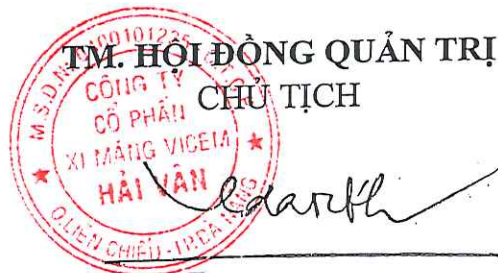 TM. HỘI ĐỒNG QUẢN TRỊ
CHỦ TỊCH
CÔNG TY
CỔ PHẦN
XI MĂNG VICEM
HẢI VÂN
Q.LIÊN CHIỂU - TP.ĐÀ NẴNG